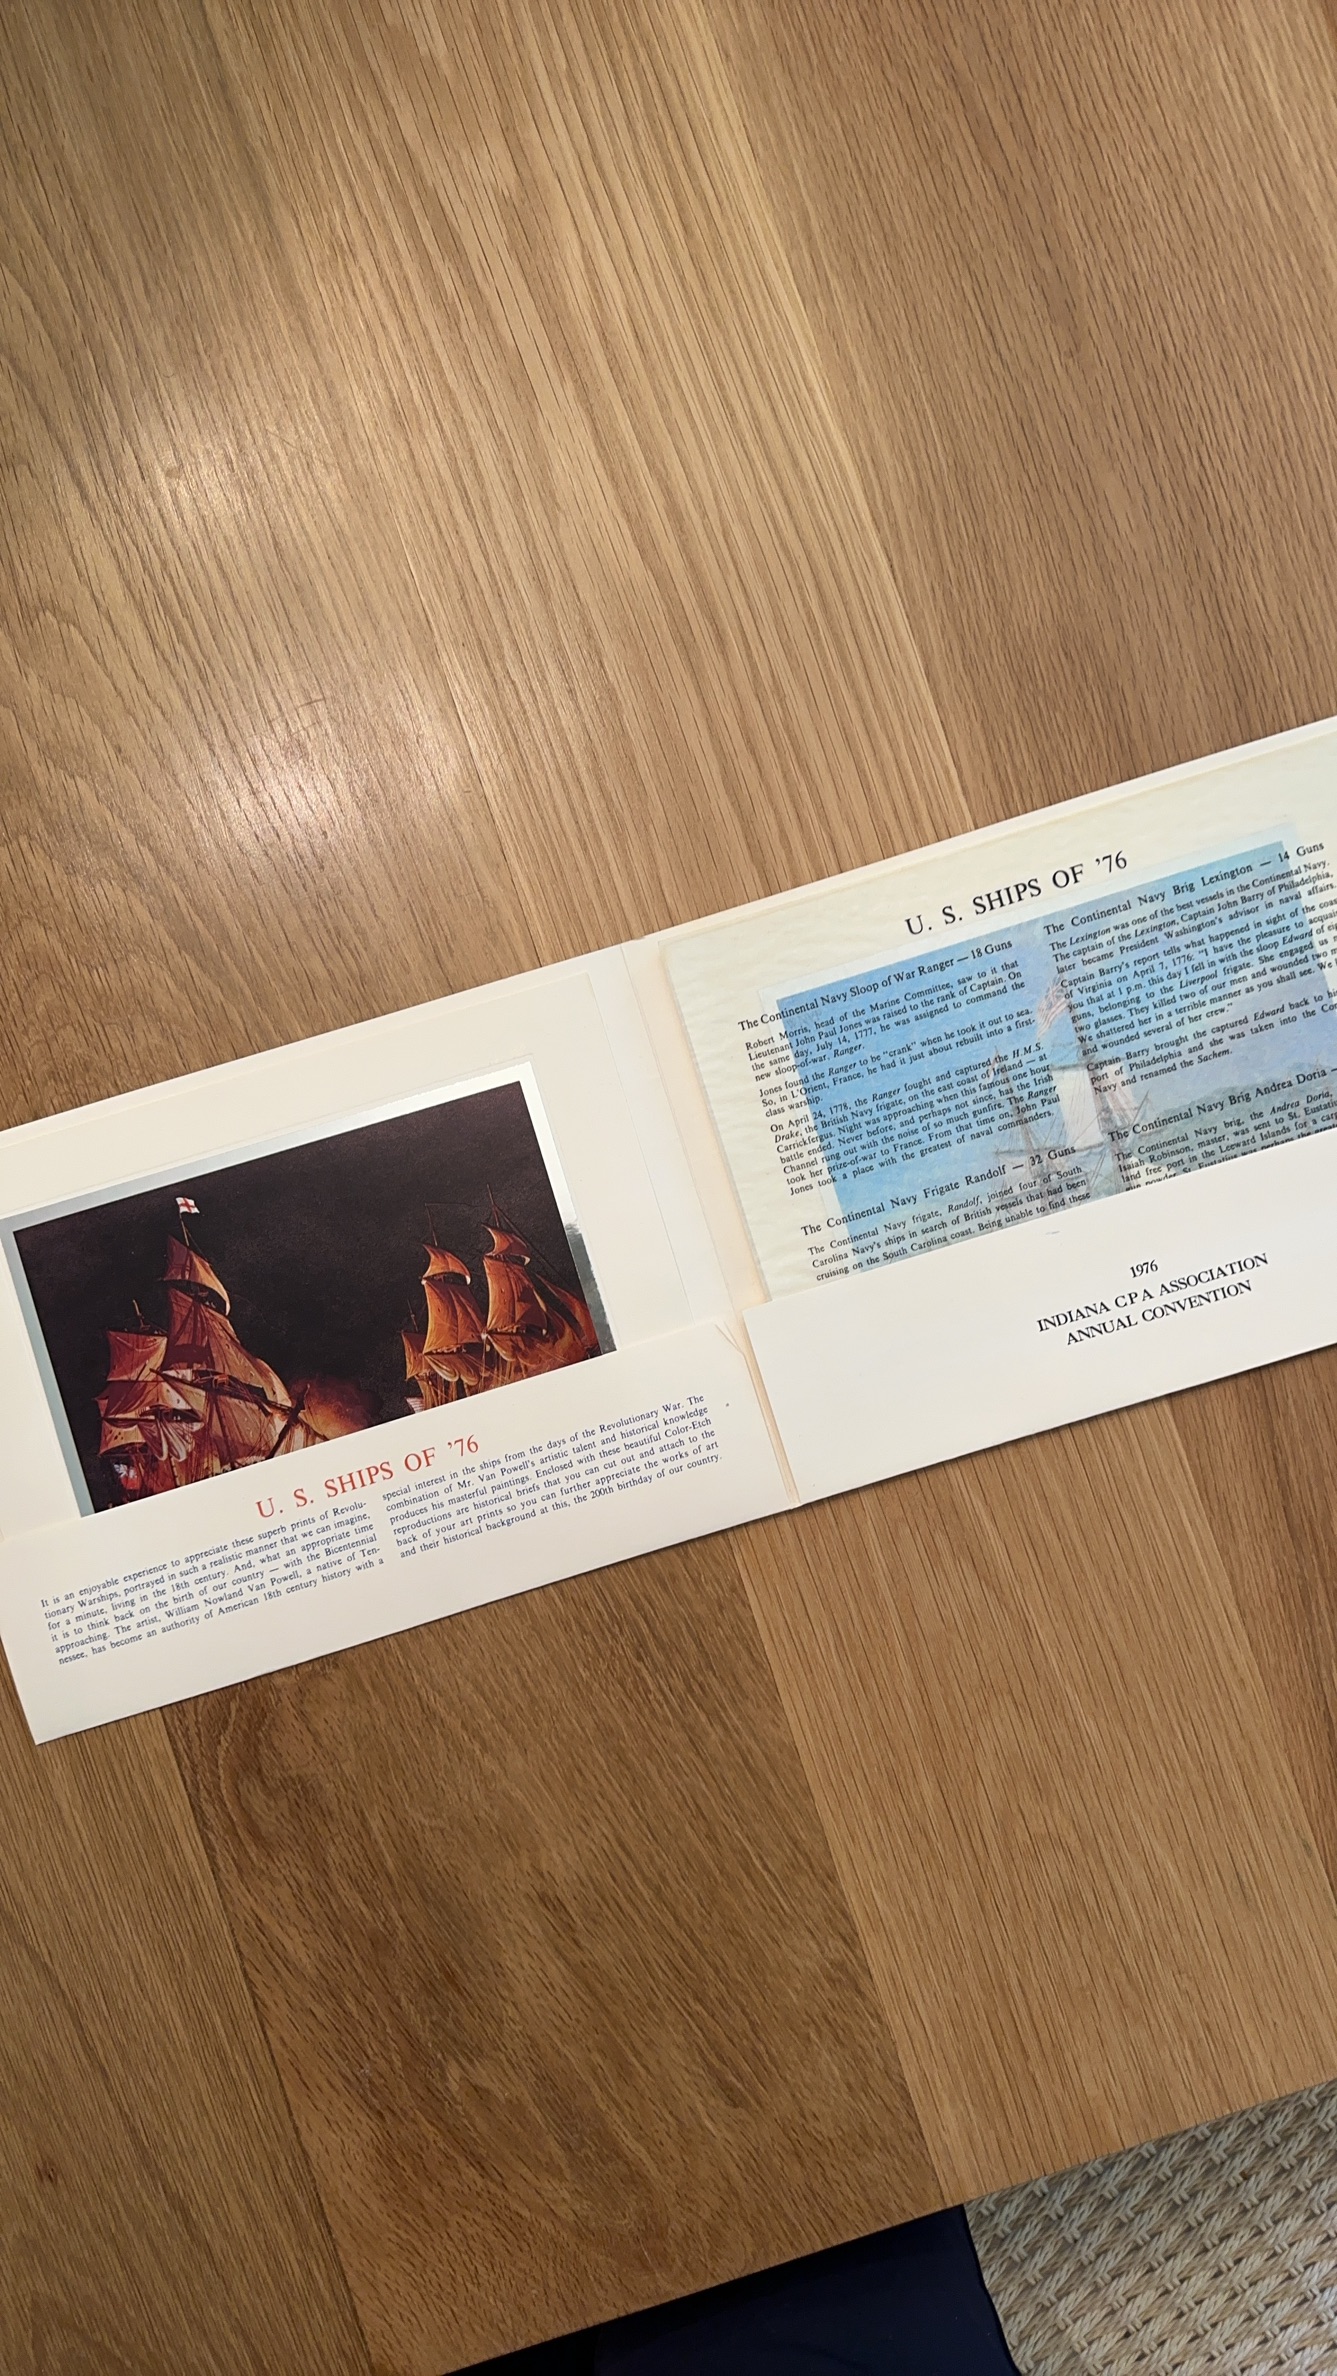 U. S. SHIPS OF ’76
It is an enjoyable experience to appreciate these superb prints of Revolu-
tionary Warships, portrayed in such a realistic manner that we can imagine,
for a minute, living in the 18th century. And, what an appropriate time
it is to think back on the birth of our country — with the Bicentennial
approaching. The artist, William Nowland Van Powell, a native of Ten-
nessee, has become an authority of American 18th century history with a
special interest in the ships from the days of the Revolutionary War. The
combination of Mr. Van Powell's artistic talent and historical knowledge
produces his masterful paintings. Enclosed with these beautiful Color-Etch
reproductions are historical briefs that you can cut out and attach to the
back of your art prints so you can further appreciate the works of art
and their historical background at this, the 200th birthday of our country.
U. S. SHIPS OF ’76
The Continental Navy Sloop of War Ranger — 18 Guns
Robert Morris, head of the Marine Committee, saw to it that
Lieutenant John Paul Jones was raised to the rank of Captain. On
the same day, July 14, 1777, he was assigned to command the
new sloop-of-war, Ranger.
Jones found the Ranger to be “crank” when he took it out to sea.
So, in L'Orient, France, he had it just about rebuilt into a first-
class warship.
On April 24, 1778, the Ranger fought and captured the H.M.S.
Drake, the British Navy frigate, on the east coast of Ireland — at
Carrickfergus. Night was approaching when this famous one hour
battle ended. Never before, and perhaps not since, has the Irish
Channel rung out with the noise of so much gunfire. The Ranger
took her prize-of-war to France. From that time on, John Paul
Jones took a place with the greatest of naval commanders.
The Continental Navy Frigate Randolf — 32 Guns
The Continental Navy frigate, Randolf, joined four of South
Carolina Navy's ships in search of British vessels that had been
cruising on the South Carolina coast. Being unable to find these
The Continental Navy Brig Lexington — 14 Guns
The Lexington was one of the best vessels in the Continental Navy.
The captain of the Lexington, Captain John Barry of Philadelphia,
later became President Washington's advisor in naval affairs.
Captain Barry's report tells what happened in sight of the
of Virginia on April 7, 1776: “I have the pleasure to
you that at 1 p.m. this day I fell in with the sloop Edward of
guns, belonging to the Liverpool frigate. She engaged us
two glasses. They killed two of our men and wounded two
We shattered her in a terrible manner as you shall see. We
and wounded several of her crew.”
Captain Barry brought the captured Edward back to
port of Philadelphia and she was taken into the
Navy and renamed the Sachem.
The Continental Navy Brig Andrea Doria —
The Continental Navy brig, the Andrea Doria,
Isaiah Robinson, master, was sent to St.
land free port in the Leeward Islands for a
1976
INDIANA CPA ASSOCIATION
ANNUAL CONVENTION